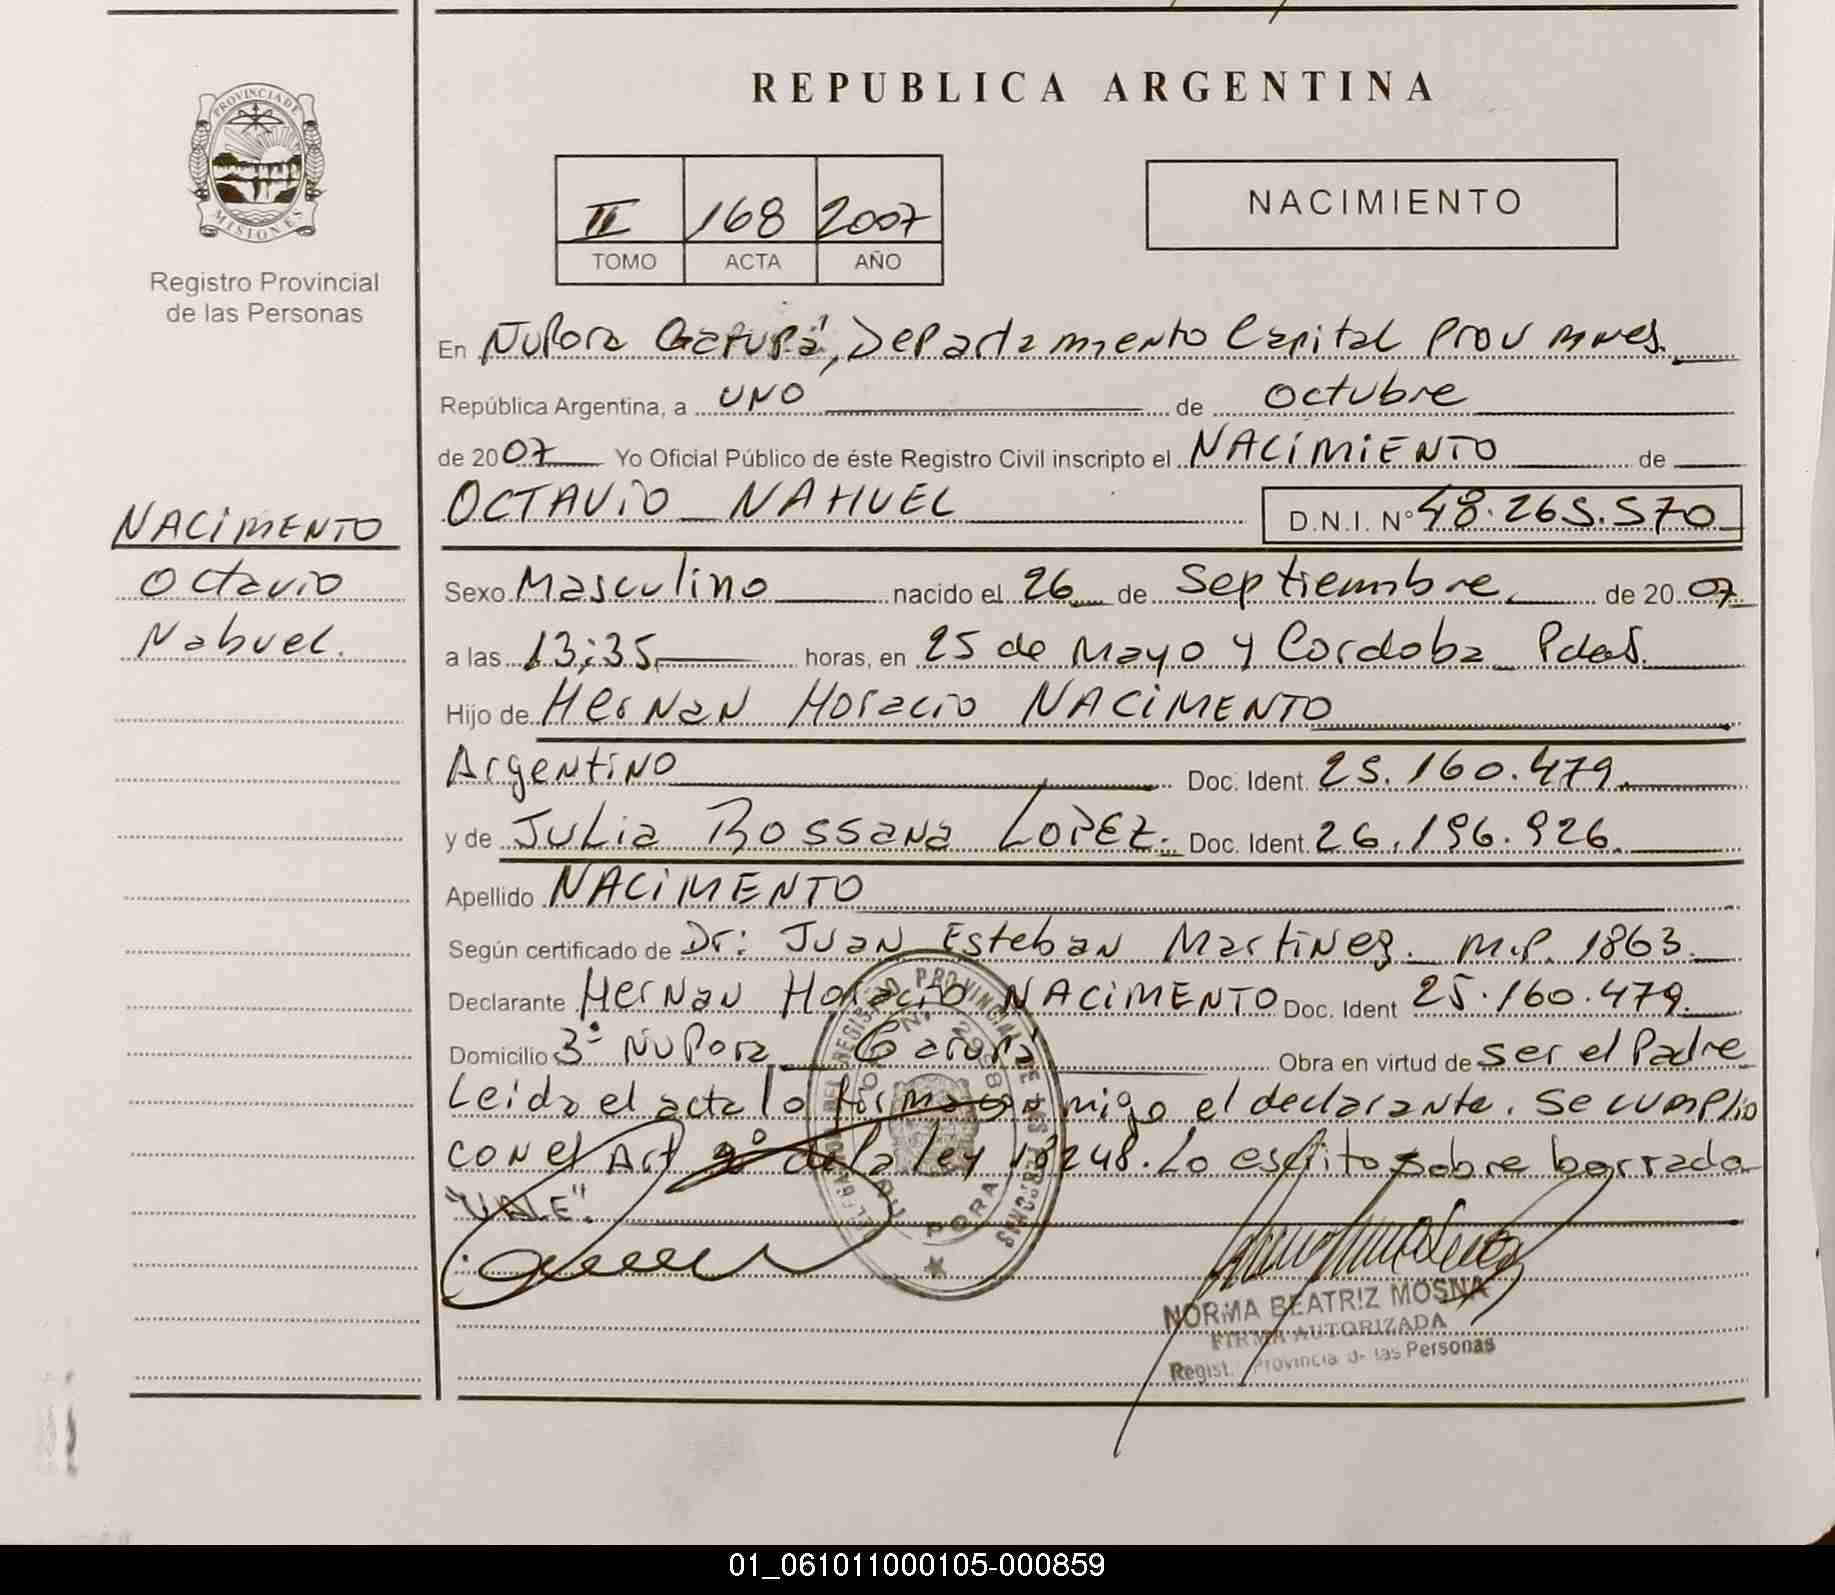 REPUBLICA ARGENTINA
PROVINCIA DE
MISIONES
Registro Provincial
de las Personas
II 168 2007
TOMO ACTA AÑO
NACIMIENTO
En Ñu Pora Garupá, Departamento Capital Prov Mnes.
República Argentina, a UNO de octubre
de 2007 Yo Oficial Público de éste Registro Civil inscripto el NACIMIENTO de
OCTAVIO NAHUEL D.N.I. Nº 48.265.570
NACIMENTO
Octavio
Nahuel.
Sexo Masculino nacido el 26 de Septiembre de 2007
a las 13:35 horas, en 25 de Mayo y Cordoba Pdas.
Hijo de Hernan Horacio NACIMENTO
Argentino Doc. Ident. 25.160.479.
y de Julia Rossana LOPEZ. Doc. Ident. 26.196.926.
Apellido NACIMENTO
Según certificado de Dr: Juan Esteban Martinez. M.P. 1863.
Declarante Hernan Horacio NACIMENTO Doc. Ident 25.160.479.
Domicilio 3º Ñu Pora Garupá Obra en virtud de ser el Padre
Leida el acta lo firma con migo el declarante. Se cumplio
con el Art 2º de la ley 18248. Lo escrito sobre borrado
"VALE".
PORA
NORMA BEATRIZ MOSNA
FIRMA AUTORIZADA
Regist. Provincial de las Personas
01_061011000105-000859